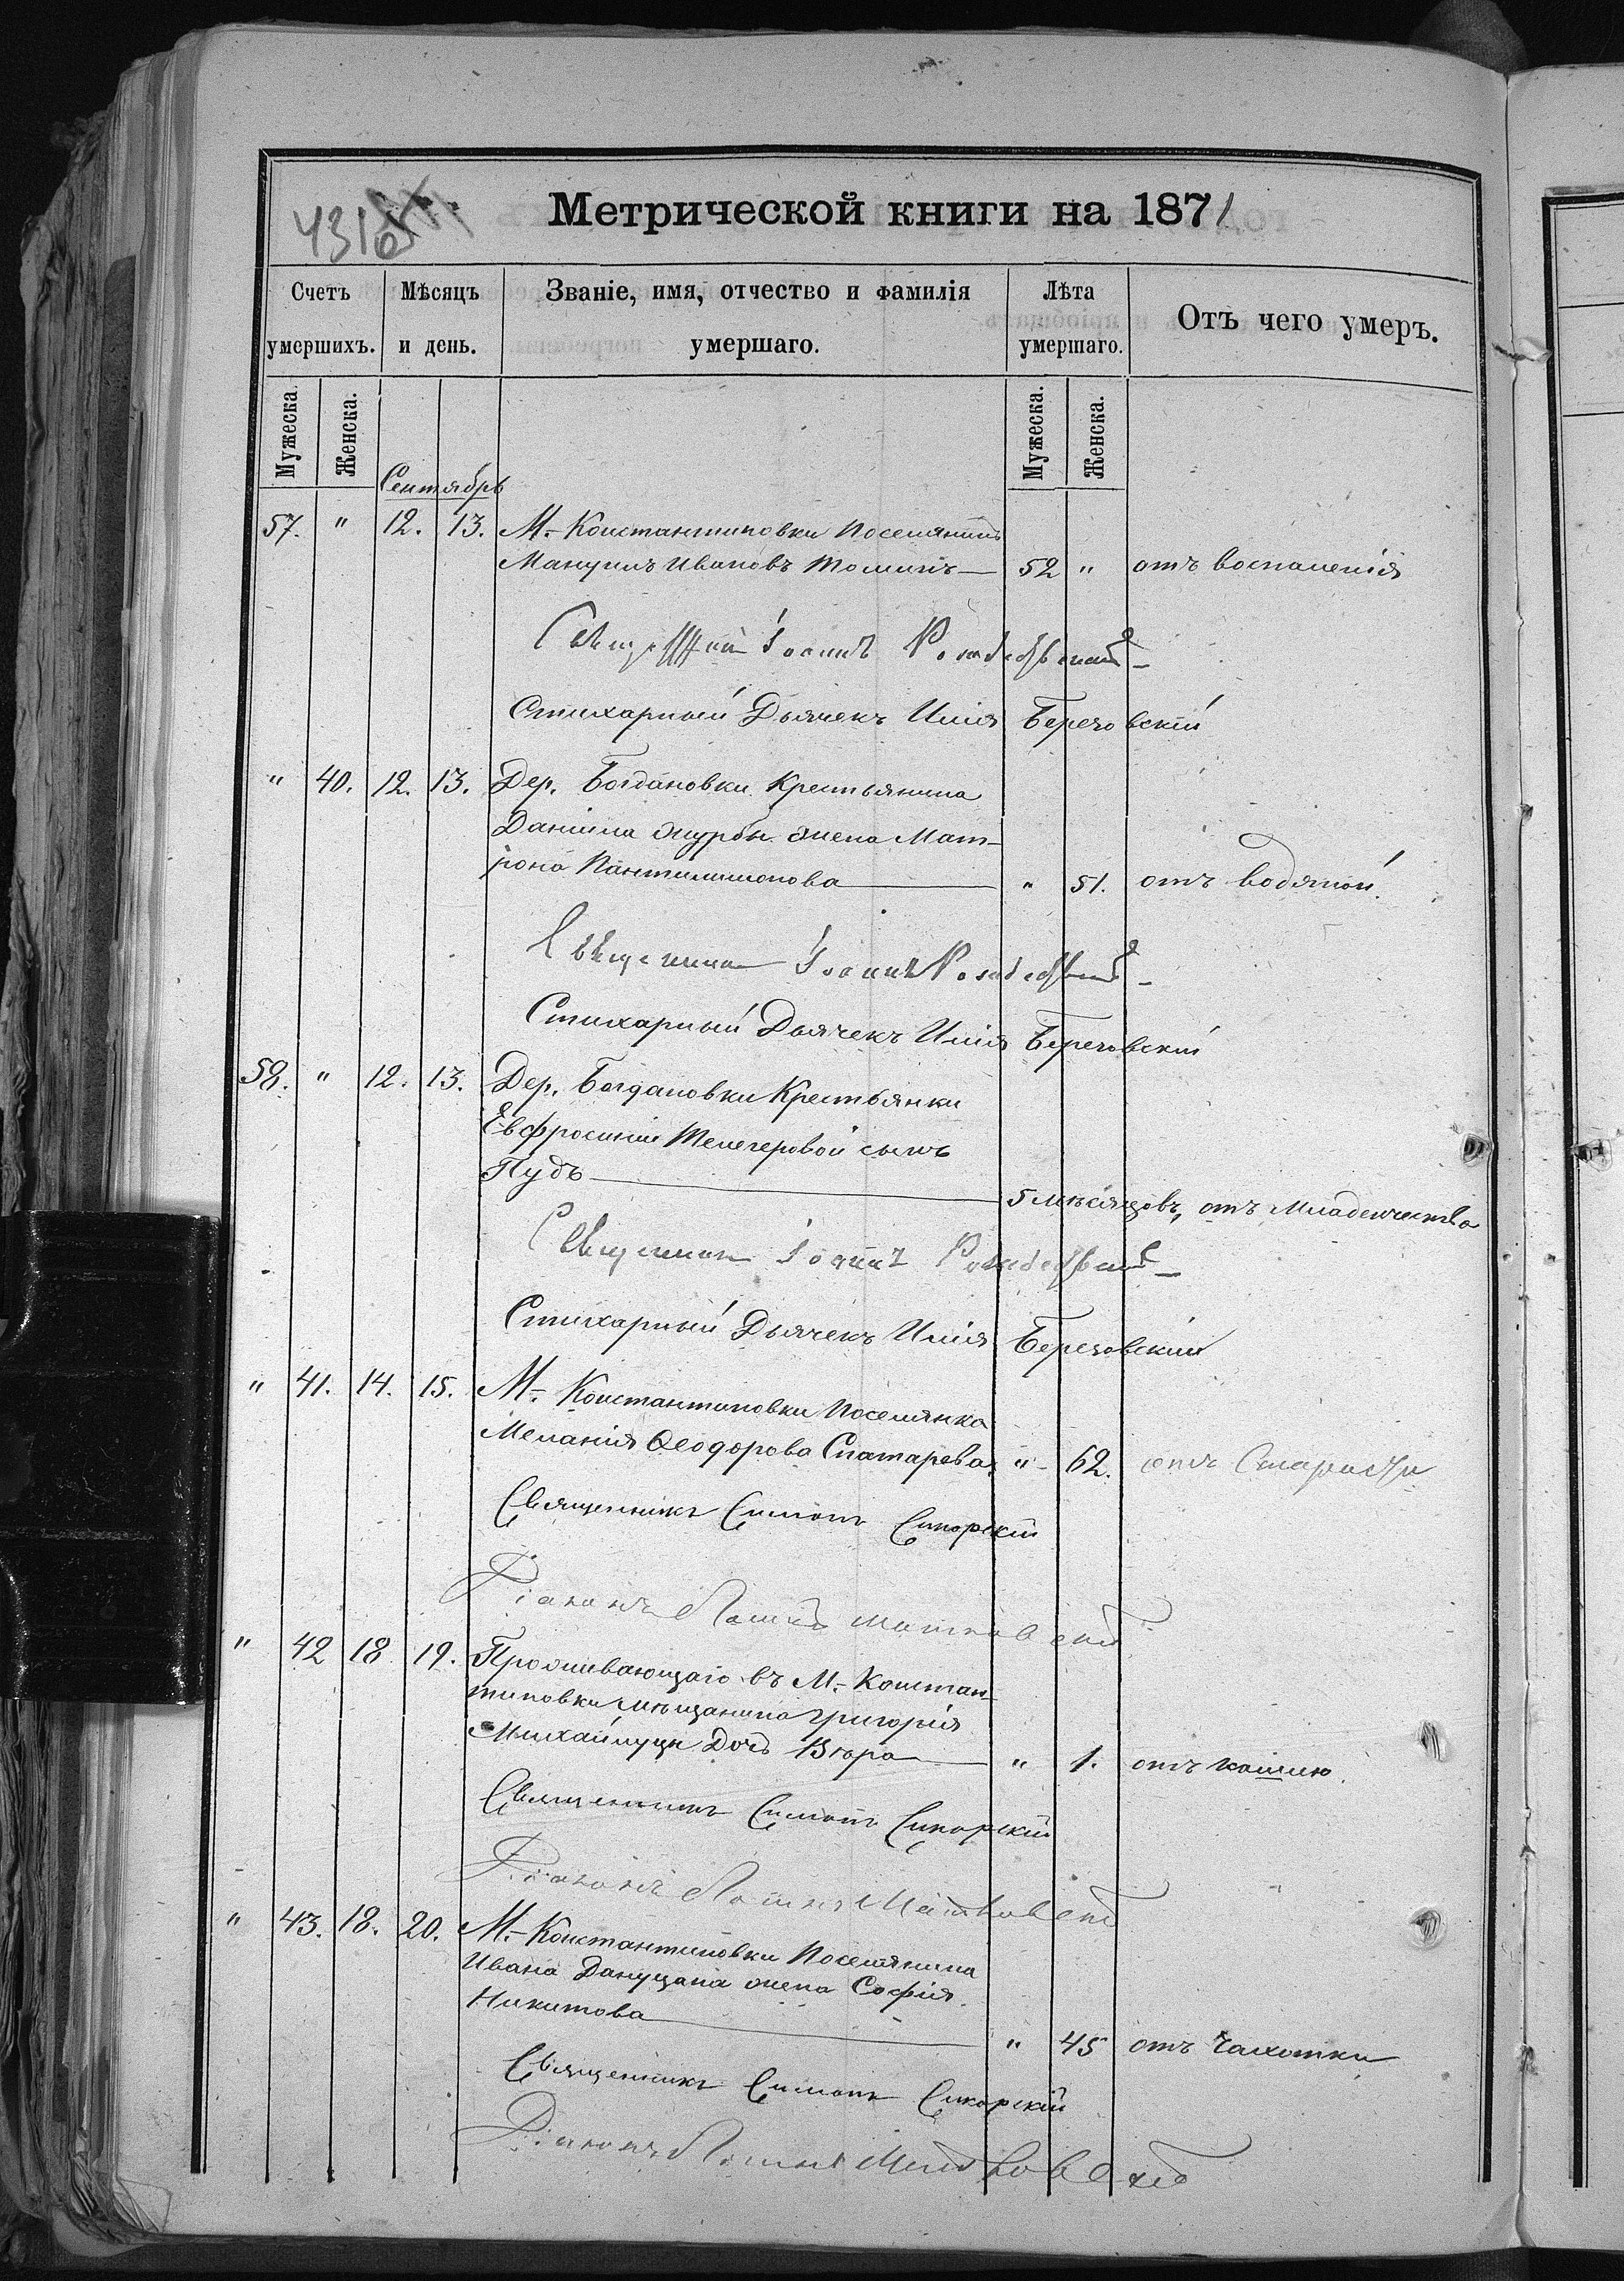 Метрической книги на 1871
4316
Счетъ умершихъ. Мѣсяцъ и день. Званіе, имя, отчество и фамилія умершаго. Лѣта умершаго. Отъ чего умеръ.
Мужеска. Женска. Мужеска. Женска.
Сентябрь
57. " 12. 13. М. Константиновки Поселянинъ
Мануилъ Ивановъ Томинъ 52 " отъ воспаленія
Священникъ Іоаннъ
Стихарный Дьячекъ Илія Березовскій
" 40. 12. 13. Дер. Богдановки Крестьянина
Даніила жена Мат-
рона Пантилимонова " 51. отъ водяной.
Священникъ Іоаннъ
Стихарный Дьячекъ Илія Березовскій
58. " 12. 13. Дер. Богдановки Крестьянки
Евфросиніи сынъ
Пудъ 5 мѣсяцовъ, отъ младенчества
Священникъ Іоаннъ
Стихарный Дьячекъ Илія Березовскій
" 41. 14. 15. М. Константиновки Поселянка
Меланія Ѳеодорова Спатарева " 62. отъ Старости
Священникъ Симонъ Сикорскій
Діаконъ
" 42 18 19. Проживающаго въ М. Констан-
тиновки мѣщанина Григорія
Михайлуцы Дочь Вѣра " 1. отъ кашлю.
Священникъ Симонъ Сикорскій
Діаконъ
" 43. 18. 20. М. Константиновки Поселянина
Ивана Дануцана жена Софія
Никитова " 45 отъ Чахотки
Священникъ Симонъ Сикорскій
Діаконъ